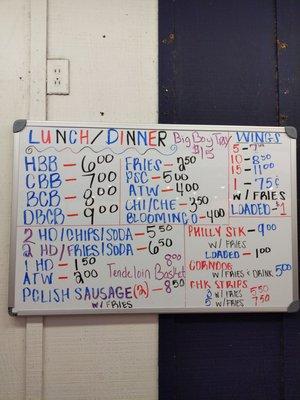 LUNCH/DINNER
Big Boy Tray
$15
HBB - 6.00
CBB - 7.00
BCB - 8.00
DBCB - 9.00
FRIES - 2.50
PSC - 5.00
ATW - 4.00
CHI/CHE - 3.50
BLOOMING O - 4.00
WINGS
5 -
10 - 8.50
15 - 11.00
1 - 75¢
W/ FRIES
LOADED - $1
2 HD/CHIPS/SODA - 5.50
2 HD/FRIES/SODA - 6.50
1 HD - 1.50
ATW - 2.00
Tenderloin Basket
8.00
POLISH SAUSAGE (2) - 8.50
W/ FRIES
PHILLY STK - 9.00
W/ FRIES
LOADED - 1.00
CORNDOG
W/ FRIES & DRINK 5.00
CHK STRIPS
W/ FRIES 5.50
W/ FRIES 7.50